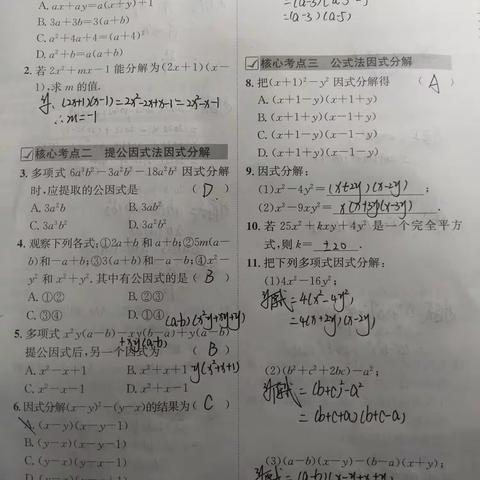 A. ax+ay=a(x+y)+1
B. 3a+3b=3(a+b)
C. a²+4a+4=(a+4)²
D. a²+b=a(a+b)
2. 若 2x²+mx-1 能分解为(2x+1)(x-
1),求 m 的值.
(2x+1)(x-1)=2x²-2x+x-1=2x²-x-1
∴m=-1
核心考点二 提公因式法因式分解
3. 多项式 6a³b²-3a²b²-18a²b³ 因式分解
时,应提取的公因式是 ( D )
A. 3a²b B. 3ab²
C. 3a³b² D. 3a²b²
4. 观察下列各式:①2a+b 和 a+b;②5m(a-
b)和-a+b;③3(a+b)和-a-b;④x²-
y² 和 x²+y². 其中有公因式的是 ( B )
A. ①② B. ②③
C. ③④ D. ①④
5. 多项式 x²y(a-b)-xy(b-a)+y(a-b)
+xy(a-b)
提公因式后,另一个因式为 ( B )
A. x²-x+1 B. x²+x+1 y(x²+x+1)
C. x²-x-1 D. x²+x-1
6. 因式分解(x-y)²-(y-x)的结果为 ( C )
A. (x-y)(x-y-1)
B. (y-x)(x-y-1)
C. (y-x)(y-x-1)
=(a-3)(a-5)
核心考点三 公式法因式分解
8. 把(x+1)²-y² 因式分解得 ( A )
A. (x+1-y)(x+1+y)
B. (x+1+y)(x-1+y)
C. (x+1-y)(x-1-y)
D. (x+1+y)(x-1-y)
9. 因式分解:
(1)x²-4y²=(x+2y)(x-2y);
(2)x³-9xy²=x(x+3y)(x-3y).
10. 若 25x²+kxy+4y² 是一个完全平方
式,则 k=±20.
11. 把下列多项式因式分解:
(1)4x²-16y²;
原式=4(x²-4y²)
=4(x+2y)(x-2y)
(2)(b²+c²+2bc)-a²;
原式=(b+c)²-a²
=(b+c+a)(b+c-a)
(3)(a-b)(x-y)-(b-a)(x+y);
原式=(a-b)(x-y+x+y)